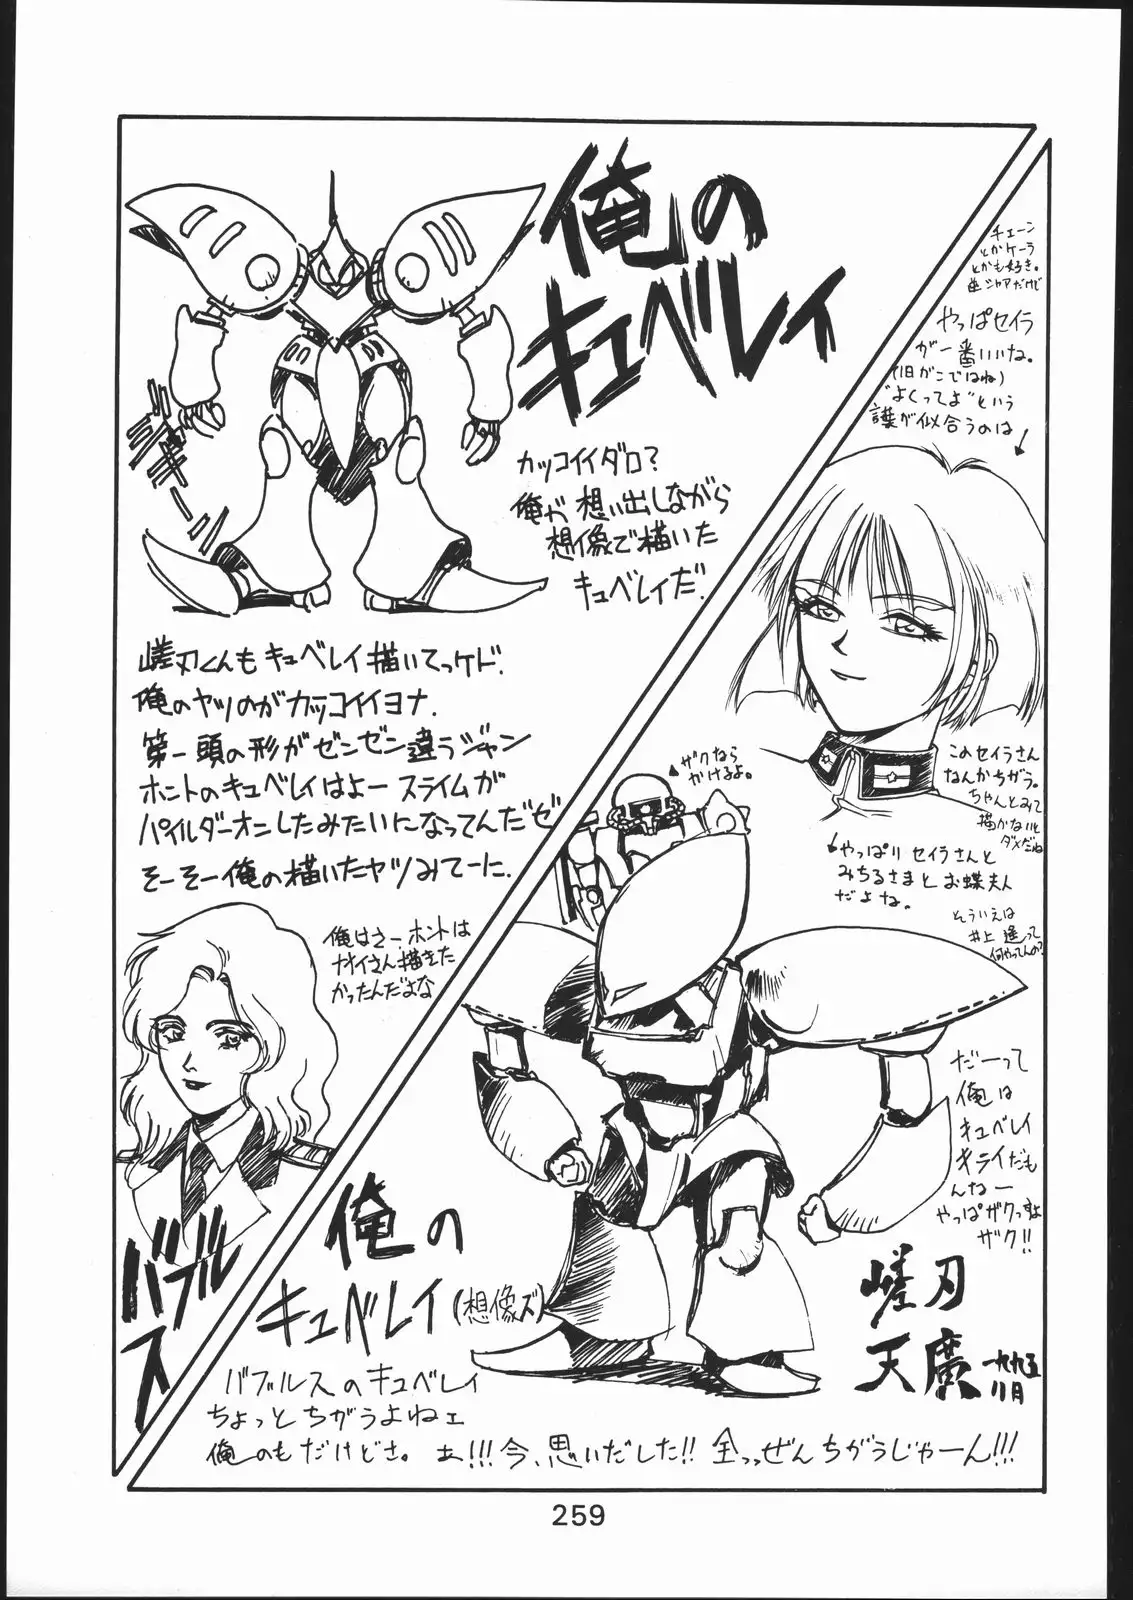 俺の
キュベレイ
カッコイイダロ?
俺が想い出しながら
想像で描いた
キュベレイだ.
嵯刃くんもキュベレイ描いてっケド.
俺のヤツのがカッコイイヨナ.
第一頭の形がゼンゼン違うジャン
ホントのキュベレイはよースライムが
パイルダーオンしたみたいになってんだゼ
そーそー俺の描いたヤツみてーに.
俺はさー.ホントは
ナナイさん描きた
かったんだよな
バブルス
チェーン
とかケーラ
とかも好き。
逆シャアだけど
やっぱセイラ
が一番いいね。
(旧がこではね)
"よくってよ"という
言葉が似合うのは
このセイラさん
なんかちがう。
ちゃんとみて
描かないと
ダメだね
やっぱりセイラさんと
みちるさまとお蝶夫人
だよな。
そういえば
井上遥って
何やってんの?
ザクなら
かけるよ。
だーって
俺は
キュベレイ
キライだも
んなー
やっぱザクっすよ
ザク!!
俺の
キュベレイ(想像ズ)
バブルスのキュベレイ
ちょっとちがうよねェ
俺のもだけどさ。あ!!!今、思いだした!!全っっぜんちがうじゃーん!!!
嵯刃
天廣
一九九五
11月
259